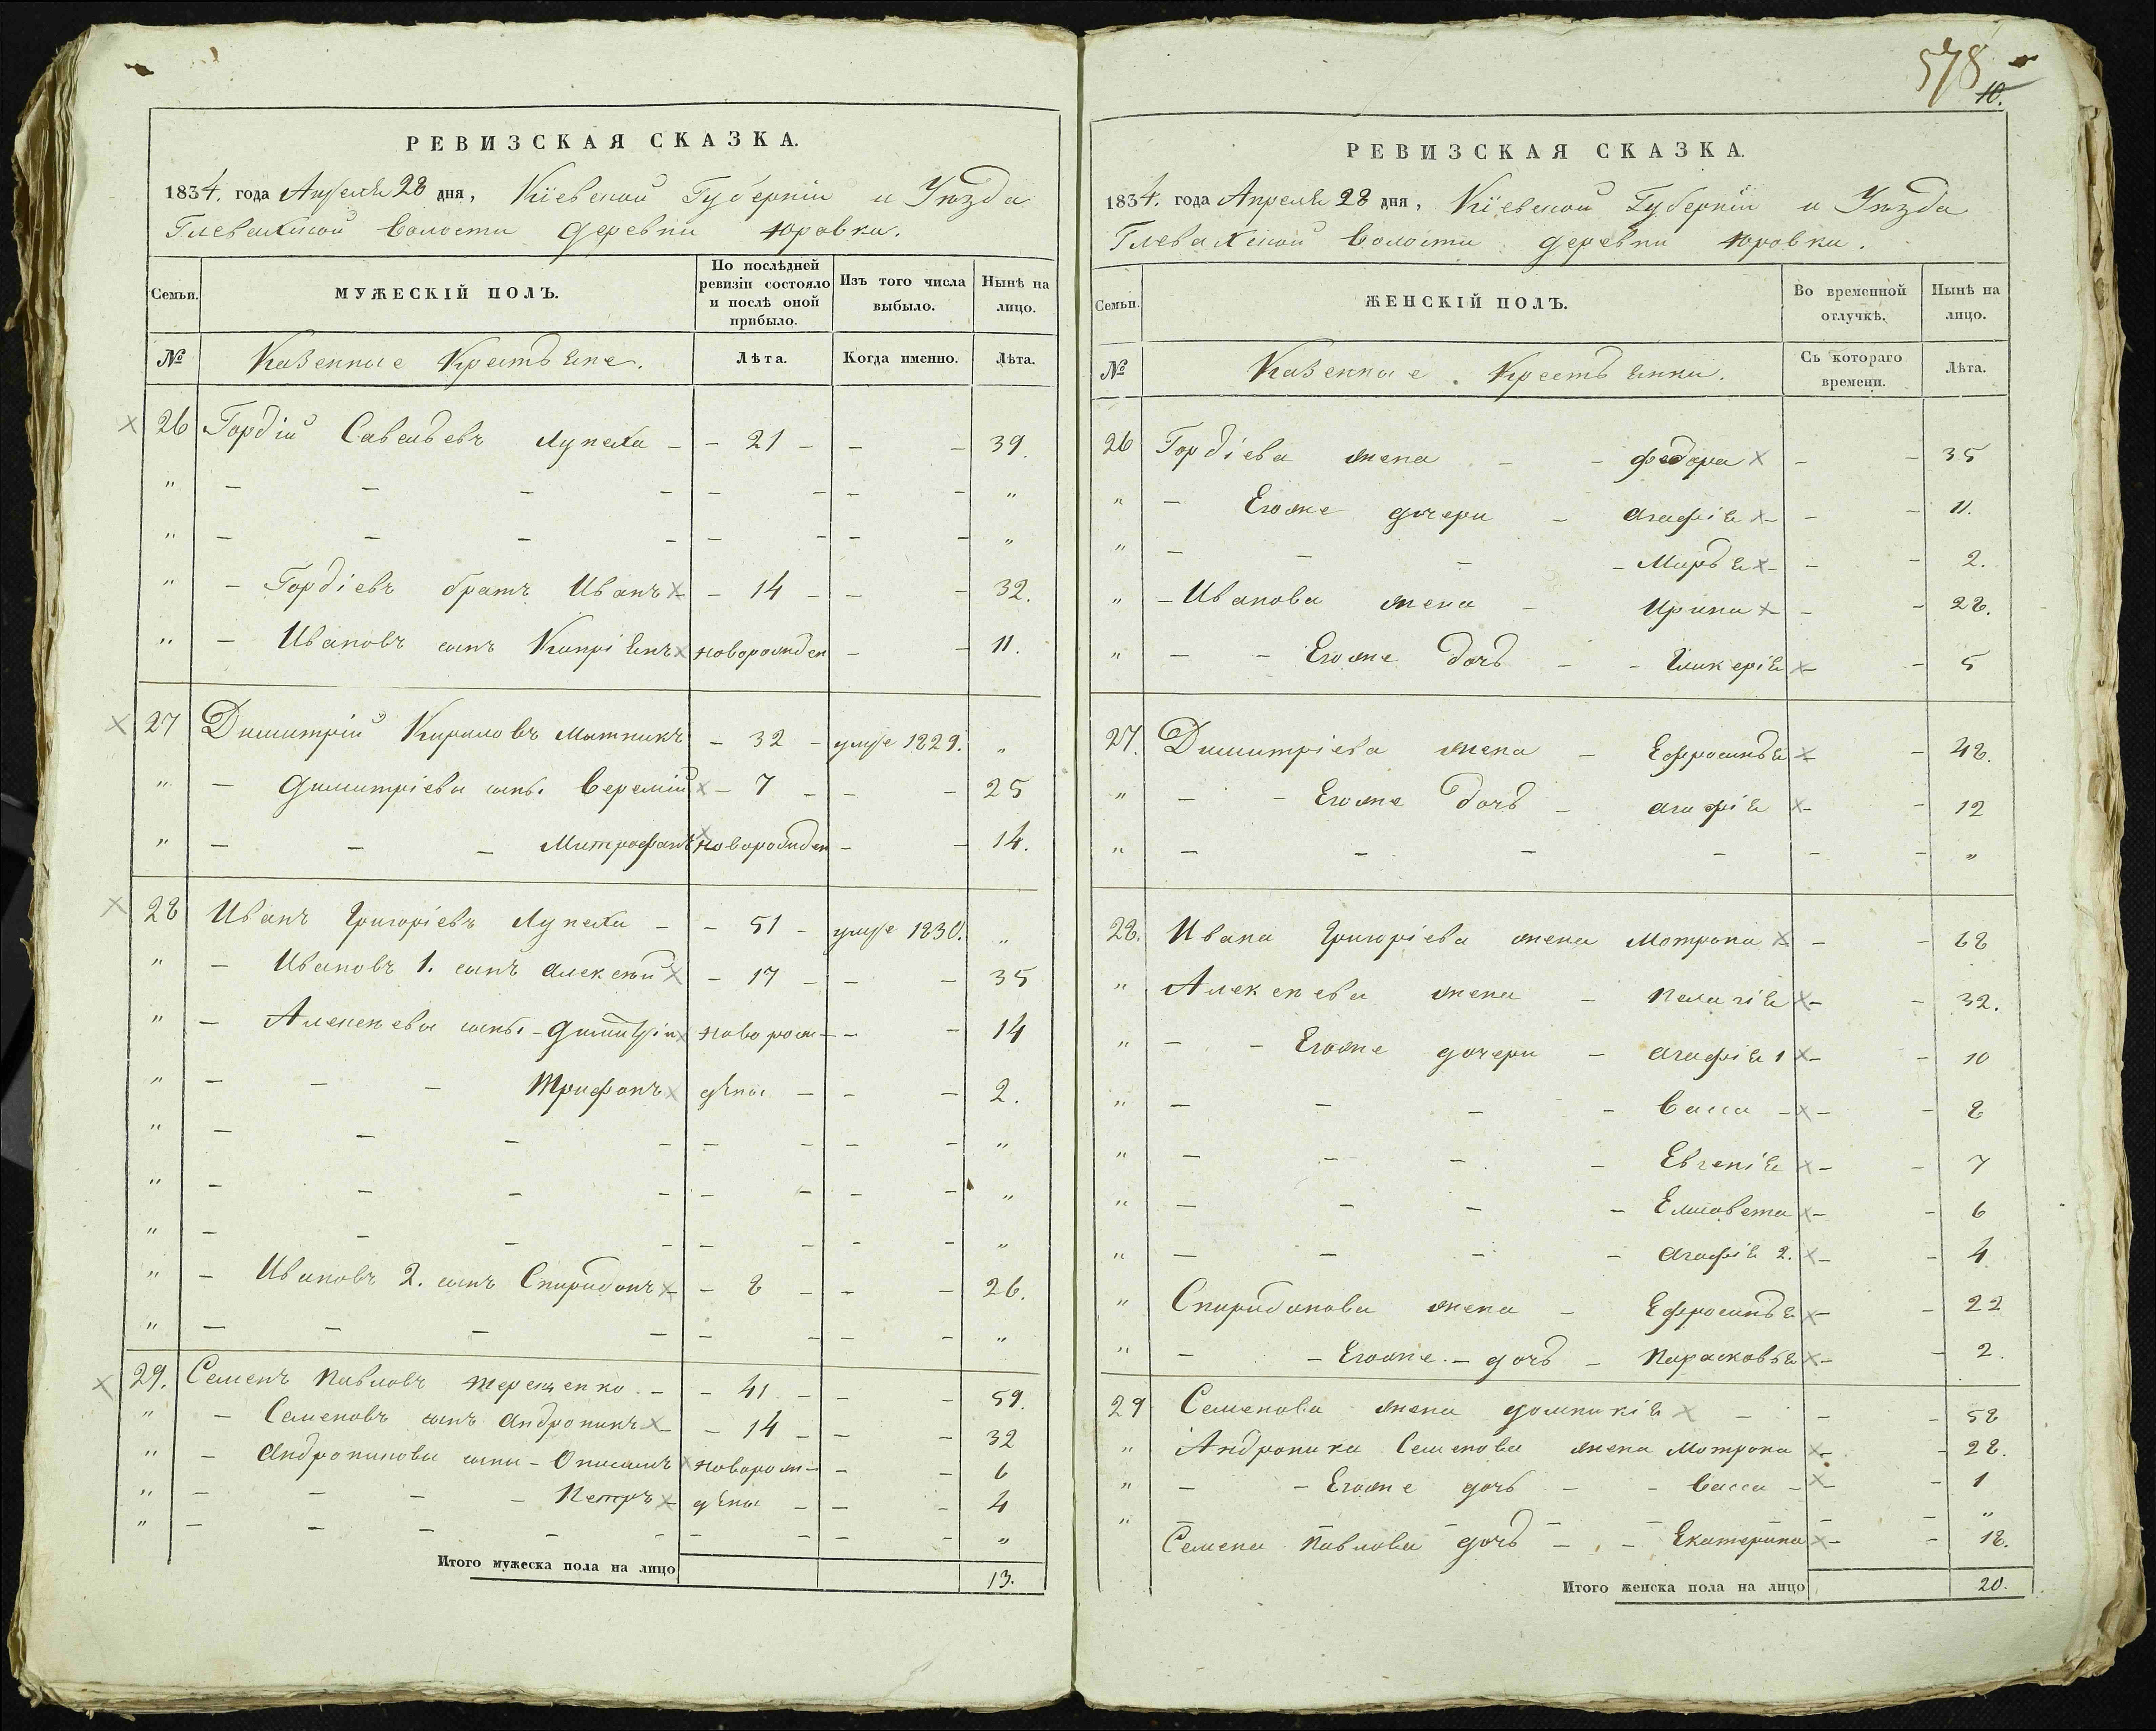 РЕВИЗСКАЯ СКАЗКА.
1834. года Апреля 28 дня, Кіевской Губерніи и Уѣзда
Глевахской Волости деревни Юровки.
Семьи. МУЖЕСКІЙ ПОЛЪ. По послѣдней ревизіи состояло и послѣ оной прибыло. Изъ того числа выбыло. Нынѣ на лицо.
№ Казенные Крестьяне. Лѣта. Когда именно. Лѣта.
26 Гордій Савельевъ Лупеха - - 21 - - - 39.
" - - - - - - - - "
" - - - - - - - - "
" - Гордіевъ братъ Иванъ - - 14 - - - 32.
" - Ивановъ сынъ Кипріянъ новорожден - - 11.
27 Димитрій Кириловъ Мытникъ - 32 - умре 1829. "
" - Димитріевы сыны Веремій - 7 - - - 25
" - - - Митрофанъ новорожден - - 14.
28 Иванъ Григоріевъ Лупеха - - 51 - умре 1830. "
" - Ивановъ 1. сынъ Алексѣй - 17 - - - 35
" - Алексѣевы сыны - Димитрій новорож - - - 14
" - - - Трифонъ ѣны - - - 2.
" - - - - - - - - "
" - - - - - - - - "
" - - - - - - - - "
" - Ивановъ 2. сынъ Спиридонъ - - 8 - - - 26.
" - - - - - - - - "
29. Семенъ Павловъ Терещенко. - - 41 - - - 59.
" - Семеновъ сынъ Андроникъ - - 14 - - - 32
" - Андрониковы сыны - Онисимъ новорож - - - 6
" - - - - Петръ - ѣны - - - 4
" - - - - - - - - - "
Итого мужеска пола на лицо 13.
578
10.
РЕВИЗСКАЯ СКАЗКА.
1834. года Апреля 28 дня, Кіевской Губерніи и Уѣзда
Глевахской Волости деревни Юровки.
Семьи. ЖЕНСКІЙ ПОЛЪ. Во временной отлучкѣ. Нынѣ на лицо.
№ Казенные Крестьянки. Съ котораго времени. Лѣта.
26 Гордіева жена - - Федора - - 35
" - Егоже дочери - Агафія - - - 11.
" - - - - Марья - - - 2.
" - Иванова жена - Ирина - - 28.
" - - Егоже дочь - - Гликерія - - 5
27. Димитріева жена - Ефросинья - - 48.
" - - Егоже дочь - Агафія - - 12
" - - - - - - "
28. Ивана Григоріева жена Мотрона - - 68
" Алексѣева жена - Пелагія - - 32.
" - - Егоже дочери - Агафія 1 - - 10
" - - - - Васса - - - 8
" - - - - Евгенія - - 7
" - - - - Елисавета - - 6
" - - - - Агафія 2. - - 4
" Спиридонова жена - Ефросинья - - 22
" - - Егоже. - дочь - Парасковья - - 2.
29 Семенова жена Домникія - - - 58
" Андроника Семенова жена Мотрона - - 28.
" - - Егоже дочь - - Васса - - - 1
" - - - - - - - "
Семена Павлова дочь - - Екатерина - - 18.
Итого женска пола на лицо 20.